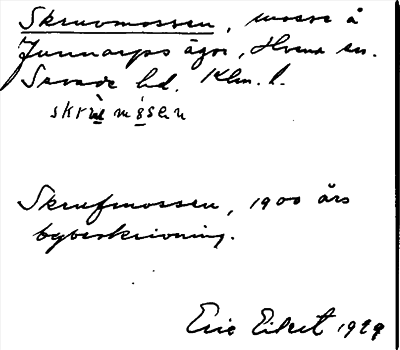 Skruvmossen, mosse å
Junnarps ägor, Hvena sn.
Sevede hd. Klm. l.
skrù̱mó̱sen
Skrufmossen, 1900 års
bybeskrivning.
Eric Eilert 1929